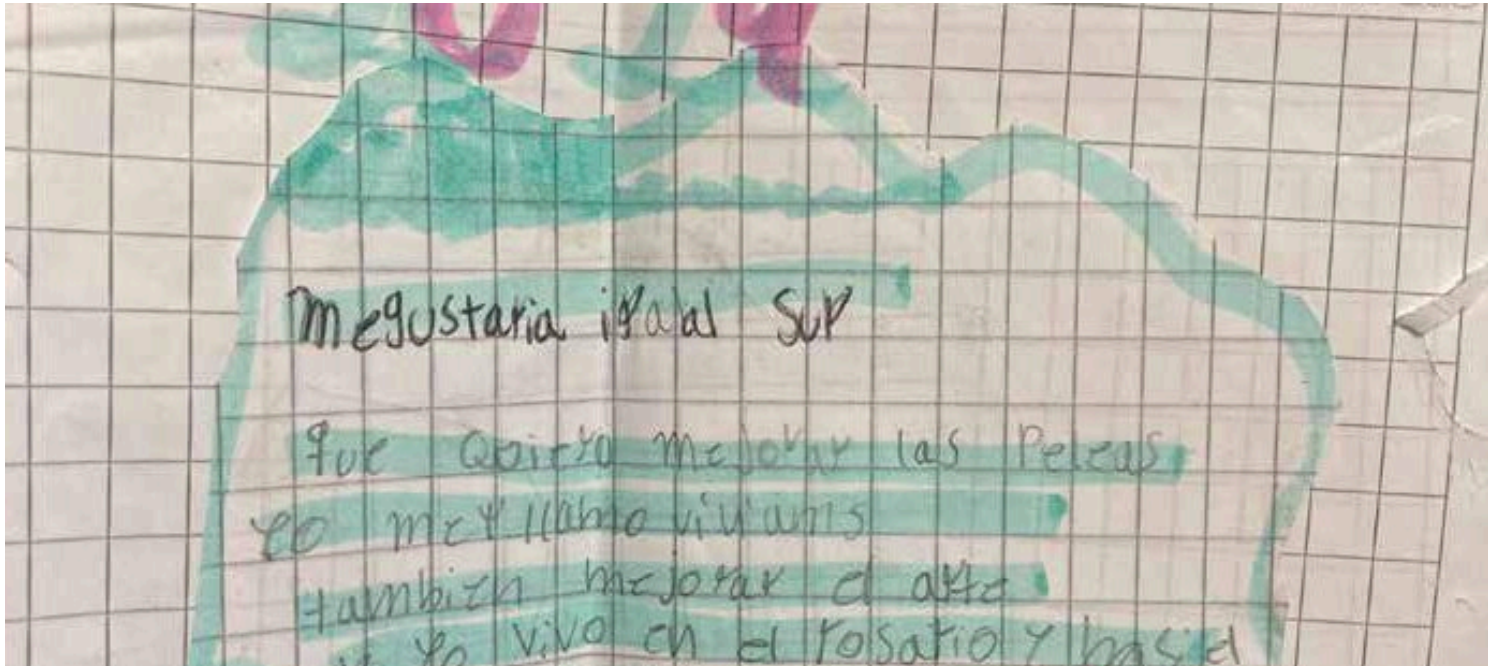 megustaria ir a al sur
que Quiero mejorar las Peleas
yo me llamo
tambien mejorar el arte
yo vivo en el rosario y